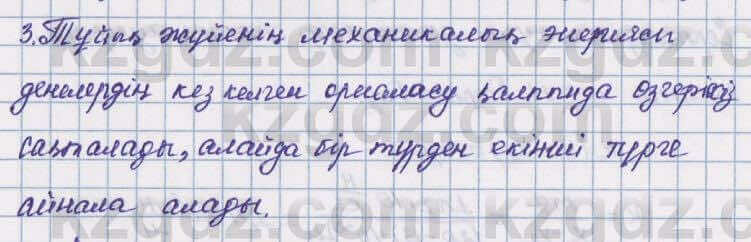 3. Тұйық жүйенің механикалық энергиясы
денелердің кез келген орналасу қалпында өзгеріссіз
сақталады, алайда бір түрден екінші түрге
айнала алады.
kzgdz.com